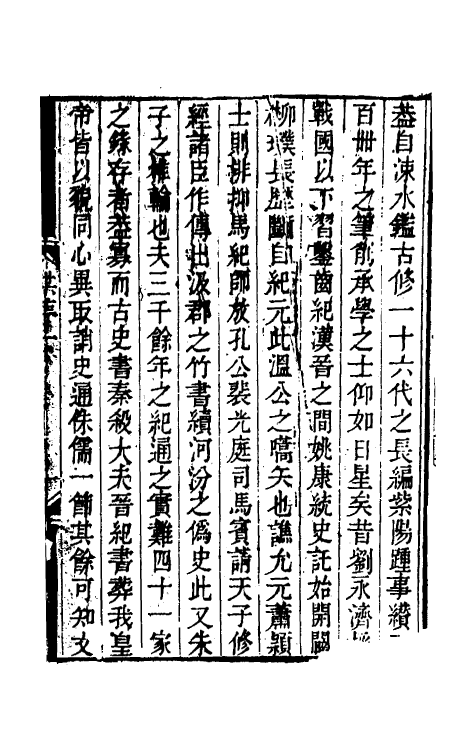 葢自涑水鑑古修一十六代之長編紫陽踵事纘
百卌年之筆削承學之士仰如日星矣昔劉永濟
戰國以下習鑿齒紀漢晉之間姚康統史託始開闢
柳璞長歷斷自紀元此溫公之嚆矢也譙允元蕭穎
士則排抑馬紀師放孔公裴光庭司馬賓請天子修
經諸臣作傳出汲郡之竹書續河汾之僞史此又朱
子之椎輪也夫三千餘年之紀通之實難四十一家
之錄存者葢寡而古史書秦殺大夫晉紀書葬我皇
帝皆以貌同心異取誚史通侏儒一節其餘可知文